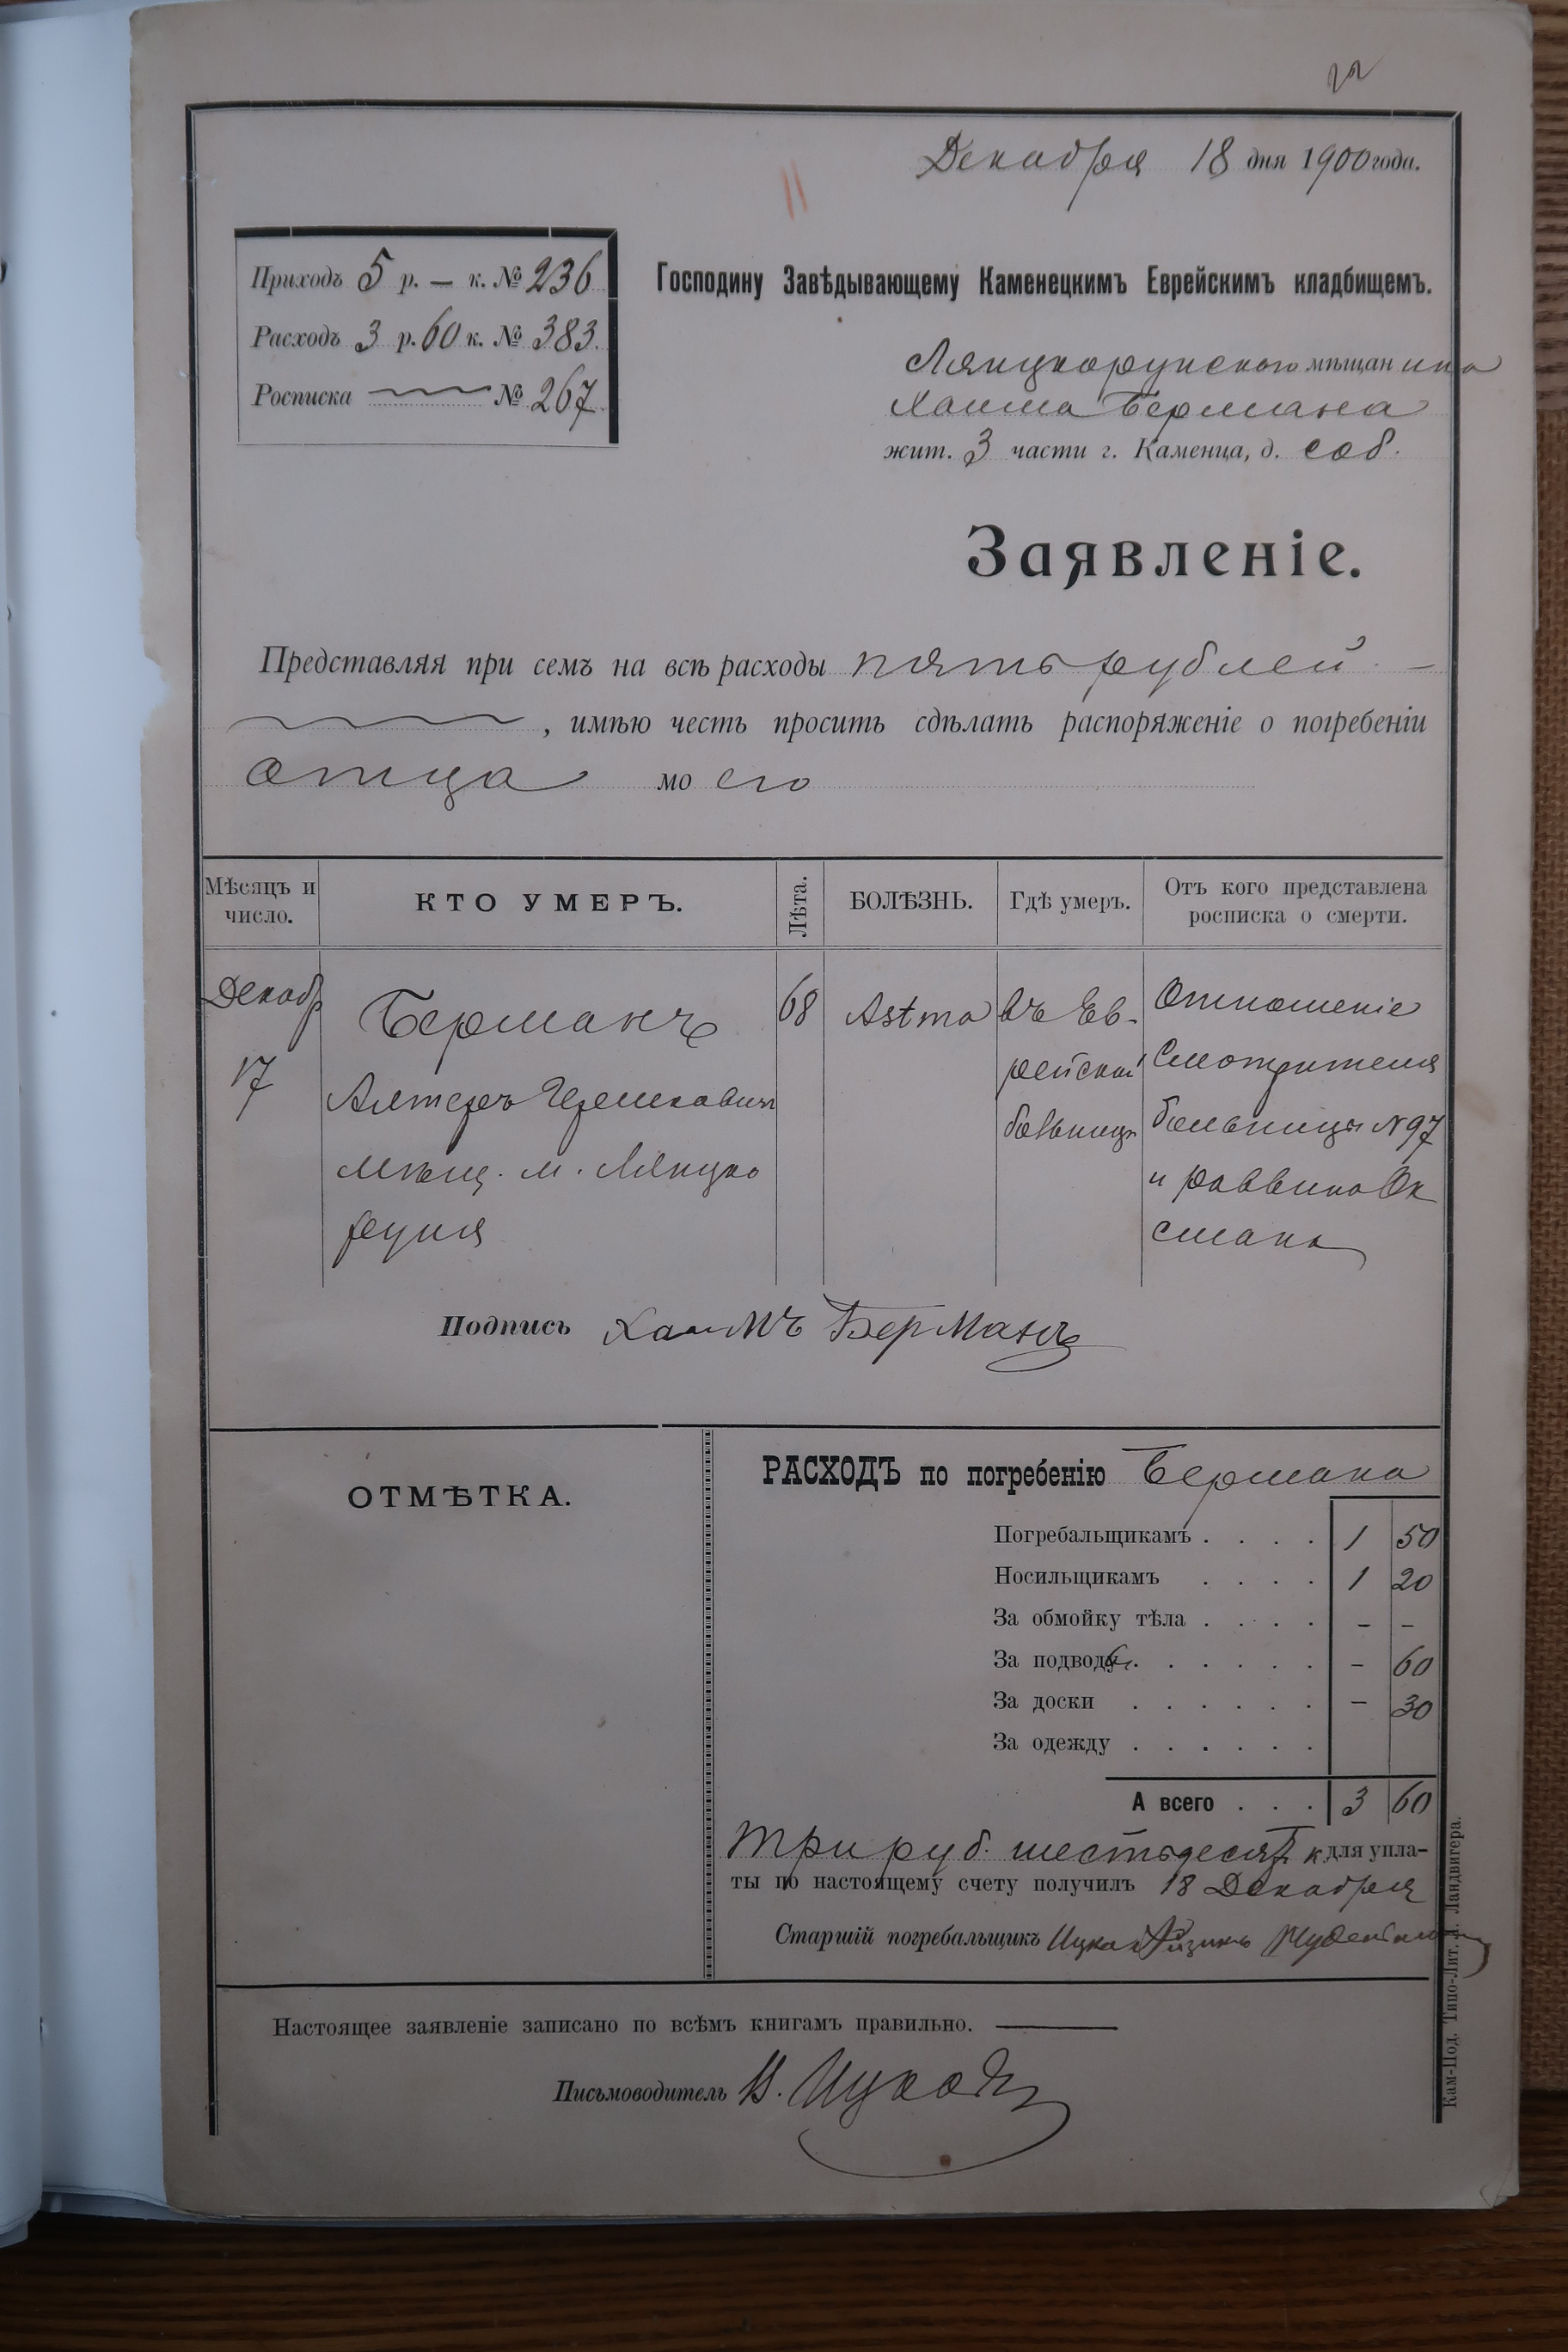 22
Декабря 18 дня 1900 года.
Приходъ 5 р. — к. № 236
Расходъ 3 р. 60 к. № 383.
Росписка № 267
Господину Завѣдывающему Каменецкимъ Еврейскимъ кладбищемъ.
Лянцкорунского мѣщанина
Хаима Бермана
жит. 3 части г. Каменца, д. соб.
Заявленіе.
Представляя при семъ на всѣ расходы пять рублей —
, имѣю честь просить сдѣлать распоряженіе о погребеніи
отца моего
Мѣсяцъ и число.
КТО УМЕРЪ.
Лѣта.
БОЛѢЗНЬ.
Гдѣ умеръ.
Отъ кого представлена росписка о смерти.
Декабр
17
Берманъ
Алтеръ Гершкович
мѣщ. м. Лянцко
руня
68
Astma
въ Ев-
рейской
больницѣ
Отношеніе
Смотрителя
больницы N 97
и раввина Ок
смана
Подпись Хаимъ Берманъ
ОТМѢТКА.
РАСХОДЪ по погребенію Бермана
Погребальщикамъ . . . . 1 50
Носильщикамъ . . . . 1 20
За обмойку тѣла . . . . - -
За подводу . . . . . . - 60
За доски . . . . . . - 30
За одежду . . . . . .
А всего . . . 3 60
Три руб. шестьдесят к для упла-
ты по настоящему счету получилъ 18 Декабря
Старшій погребальщикъ Ицко Айзикъ
Настоящее заявленіе записано по всѣмъ книгамъ правильно.
Письмоводитель
Кам-Под. Типо-Лит. А. Ландвигера.